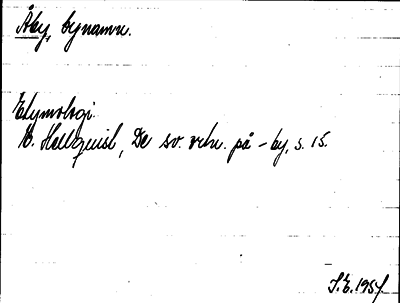 Åby, bynamn.
Etymologi.
E. Hellquist, De sv. ortn. på -by, s. 15.
S.E. 1954.